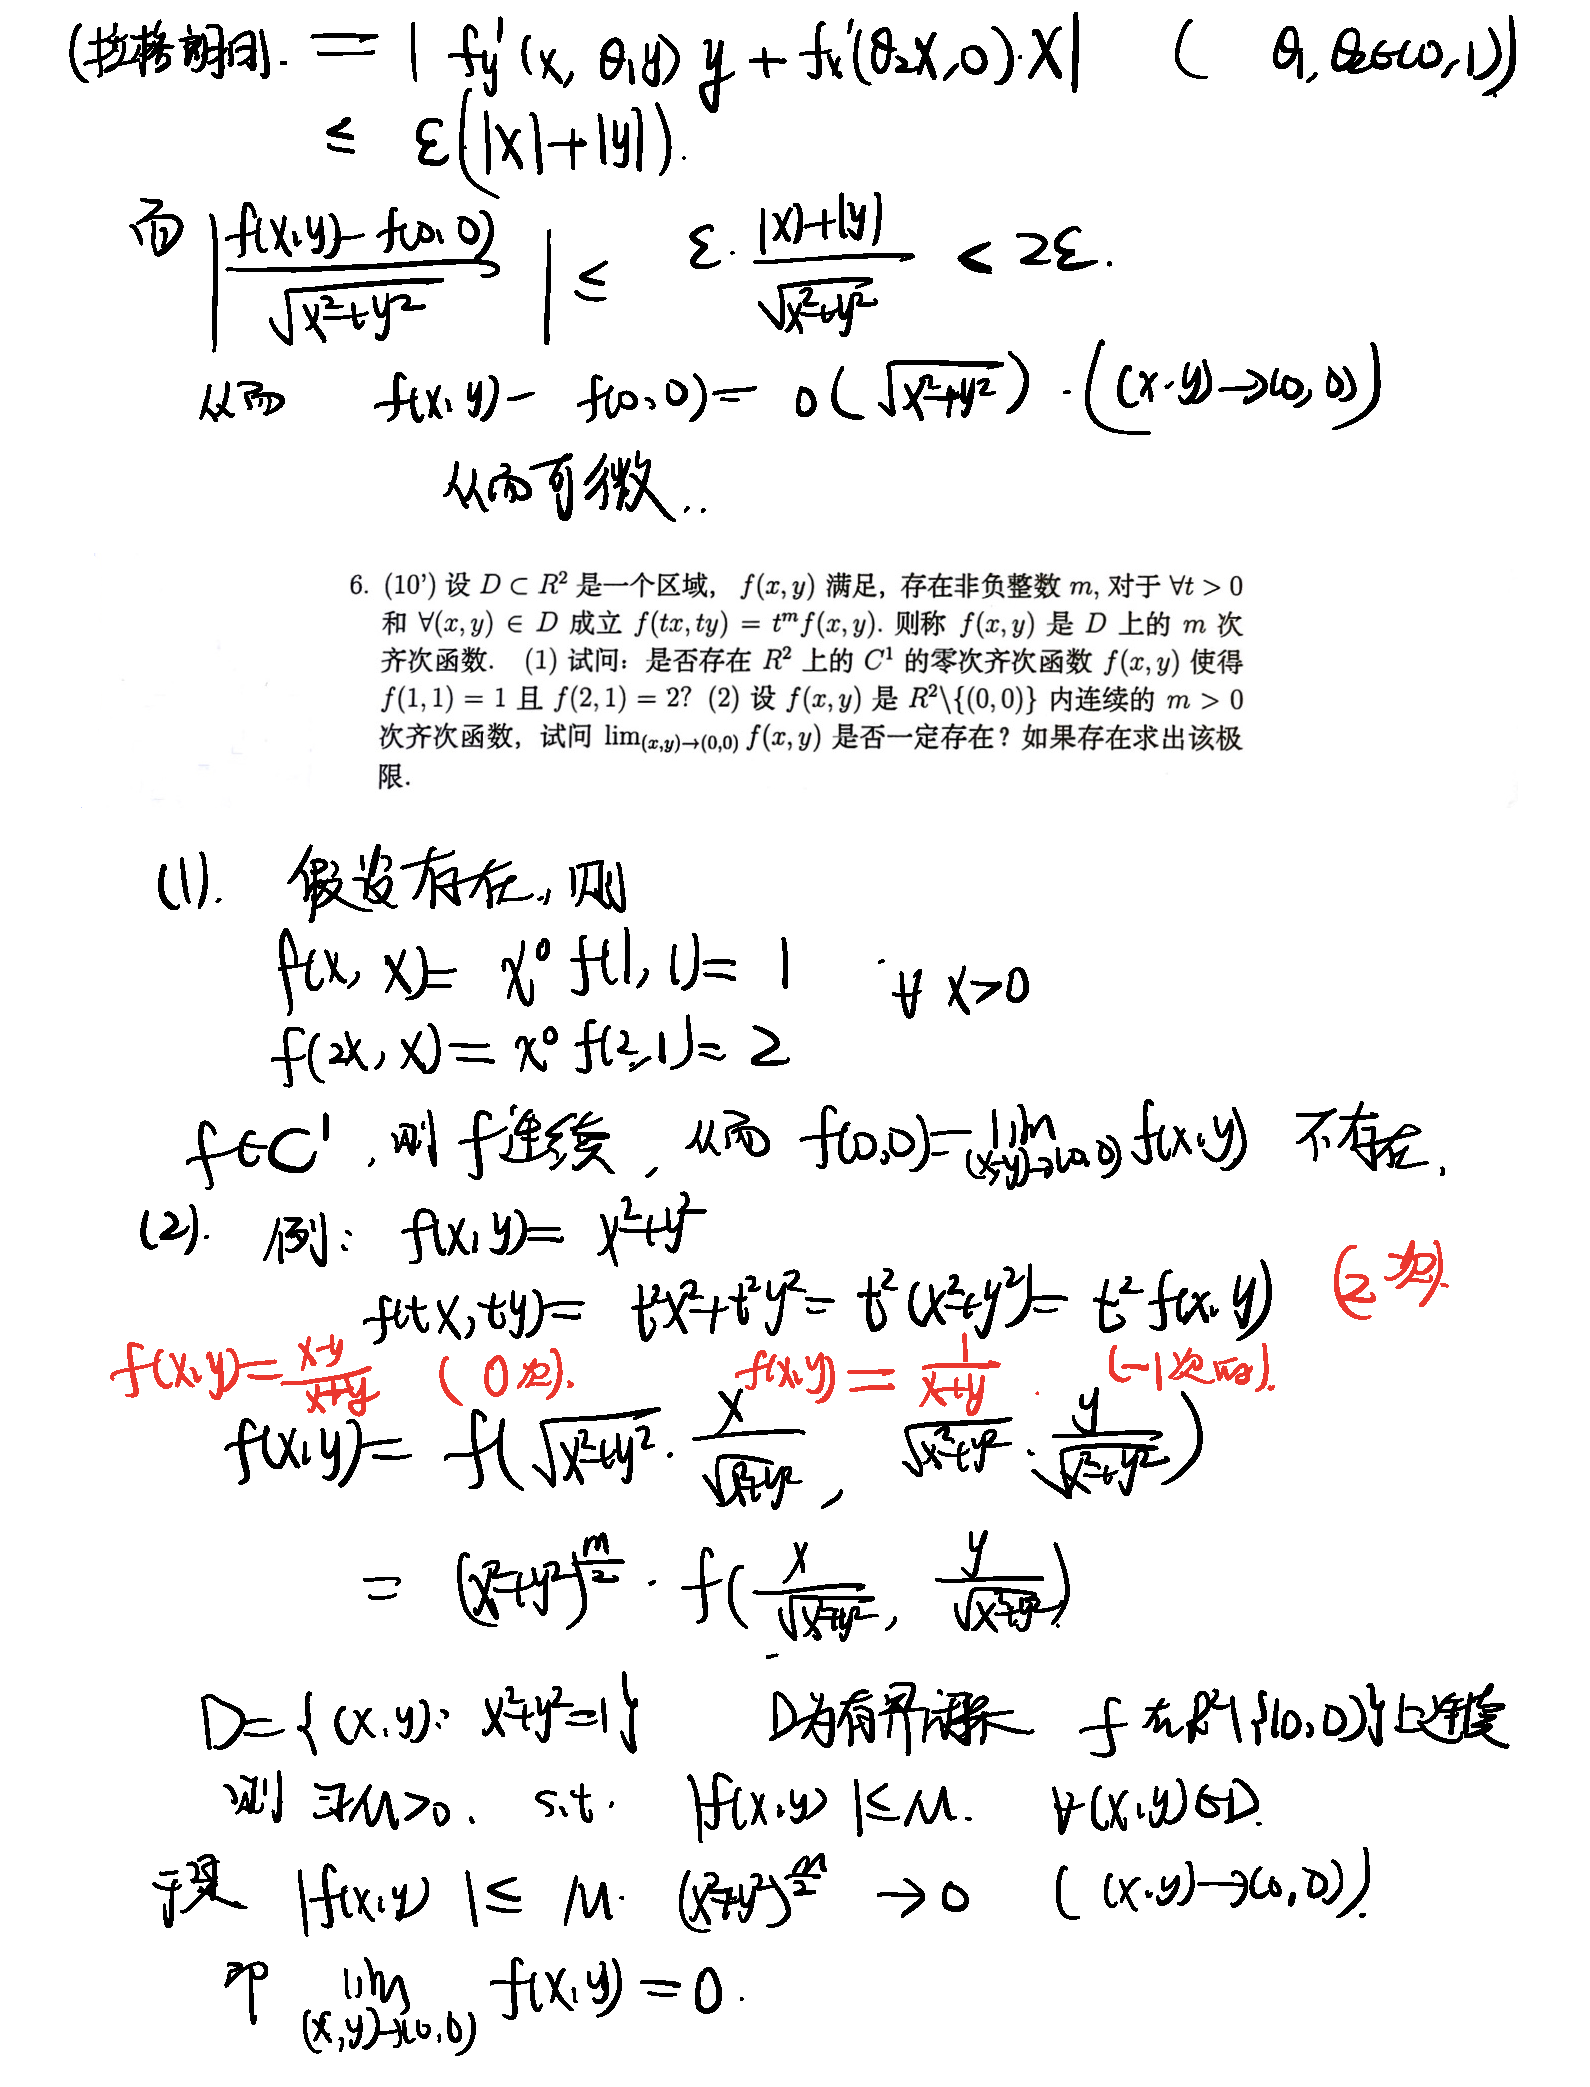 (拉格朗日). = | fy'(x, θ₁y) y + fx'(θ₂x, 0)·x| ( θ₁, θ₂∈(0,1))
≤ ε(|x|+|y|).
而 | (f(x,y)- f(0,0))/√(x²+y²) | ≤ ε· (|x|+|y|)/√(x²+y²) < 2ε.
从而 f(x,y)- f(0,0)= o(√(x²+y²)) . ((x,y)→(0,0))
从而可微..
6. (10') 设 D ⊂ R² 是一个区域, f(x,y) 满足, 存在非负整数 m, 对于 ∀t > 0
和 ∀(x,y) ∈ D 成立 f(tx,ty) = tᵐf(x,y). 则称 f(x,y) 是 D 上的 m 次
齐次函数. (1) 试问: 是否存在 R² 上的 C¹ 的零次齐次函数 f(x,y) 使得
f(1,1) = 1 且 f(2,1) = 2? (2) 设 f(x,y) 是 R²\{(0,0)} 内连续的 m > 0
次齐次函数, 试问 lim₍ₓ,ᵧ₎→₍₀,₀₎ f(x,y) 是否一定存在? 如果存在求出该极
限.
(1). 假设存在, 则
f(x, x)= x⁰ f(1, 1)= 1 ∀ x>0
f(2x, x)= x⁰ f(2,1)= 2
f∈C¹, 则 f连续, 从而 f(0,0)=lim (x,y)→(0,0) f(x,y) 不存在.
(2). 例: f(x,y)= x²+y²
f(tx,ty)= t²x²+t²y²= t²(x²+y²)= t² f(x,y) (2次).
f(x,y)= (x-y)/(x+y) (0次). f(x,y)= 1/(x+y) . (-1次的).
f(x,y)= f(√(x²+y²) · x/√(x²+y²), √(x²+y²) · y/√(x²+y²))
= (x²+y²)^(m/2) · f(x/√(x²+y²), y/√(x²+y²))
D={(x,y): x²+y²=1} D为有界闭集 f在R²\{(0,0)}上连续
则 ∃M>0. s.t. |f(x,y)|≤M. ∀(x,y)∈D.
于是 |f(x,y)|≤ M· (x²+y²)^(m/2) →0 ((x,y)→(0,0)).
即 lim (x,y)→(0,0) f(x,y) = 0.